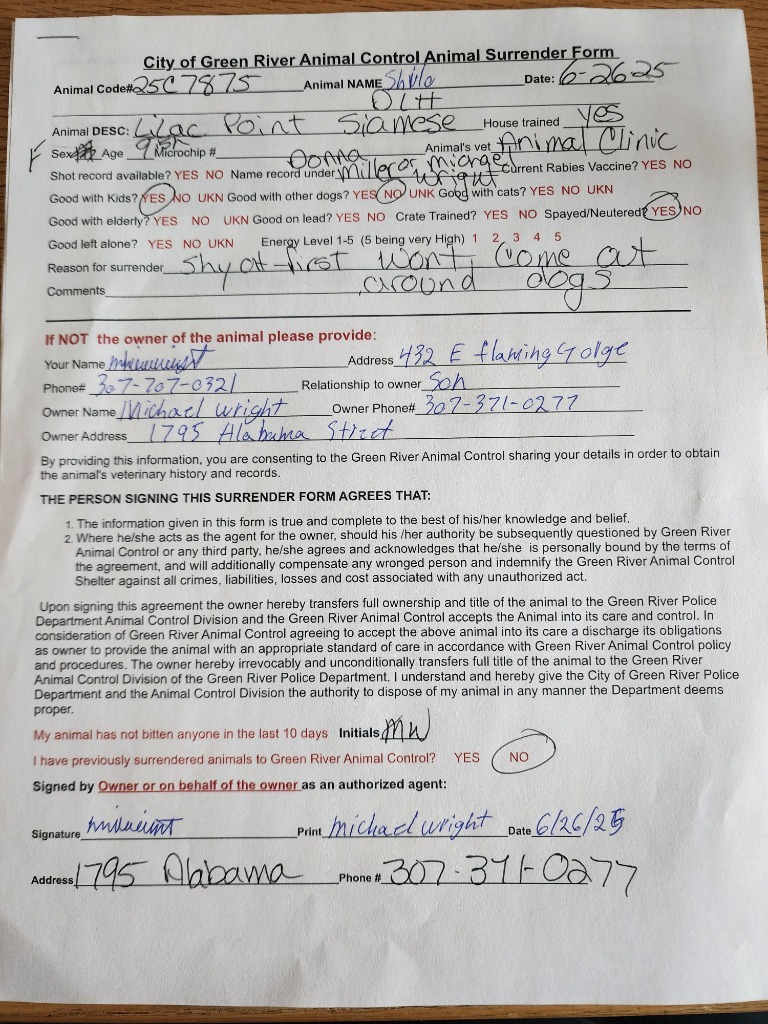 City of Green River Animal Control Animal Surrender Form
Animal Code# 25C7875 Animal NAME Date: 6-26-25
DLH
Animal DESC: Lilac Point Siamese House trained yes
F Sex Age Microchip # Animal's vet Animal Clinic
Donna
Shot record available? YES NO Name record under Miller or Michael Current Rabies Vaccine? YES NO
Wright
Good with Kids? YES NO UKN Good with other dogs? YES NO UNK Good with cats? YES NO UKN
Good with elderly? YES NO UKN Good on lead? YES NO Crate Trained? YES NO Spayed/Neutered? YES NO
Good left alone? YES NO UKN Energy Level 1-5 (5 being very High) 1 2 3 4 5
Reason for surrender Shy at first wont come out
Comments around dogs
If NOT the owner of the animal please provide:
Your Name Address 432 E flaming Gorge
Phone# 307-707-0321 Relationship to owner Son
Owner Name Michael wright Owner Phone# 307-371-0277
Owner Address 1795 Alabama Street
By providing this information, you are consenting to the Green River Animal Control sharing your details in order to obtain
the animal's veterinary history and records.
THE PERSON SIGNING THIS SURRENDER FORM AGREES THAT:
1. The information given in this form is true and complete to the best of his/her knowledge and belief.
2. Where he/she acts as the agent for the owner, should his /her authority be subsequently questioned by Green River
Animal Control or any third party, he/she agrees and acknowledges that he/she is personally bound by the terms of
the agreement, and will additionally compensate any wronged person and indemnify the Green River Animal Control
Shelter against all crimes, liabilities, losses and cost associated with any unauthorized act.
Upon signing this agreement the owner hereby transfers full ownership and title of the animal to the Green River Police
Department Animal Control Division and the Green River Animal Control accepts the Animal into its care and control. In
consideration of Green River Animal Control agreeing to accept the above animal into its care a discharge its obligations
as owner to provide the animal with an appropriate standard of care in accordance with Green River Animal Control policy
and procedures. The owner hereby irrevocably and unconditionally transfers full title of the animal to the Green River
Animal Control Division of the Green River Police Department. I understand and hereby give the City of Green River Police
Department and the Animal Control Division the authority to dispose of my animal in any manner the Department deems
proper.
My animal has not bitten anyone in the last 10 days Initials MW
I have previously surrendered animals to Green River Animal Control? YES NO
Signed by Owner or on behalf of the owner as an authorized agent:
Signature Print Michael wright Date 6/26/25
Address 1795 Alabama Phone # 307-371-0277